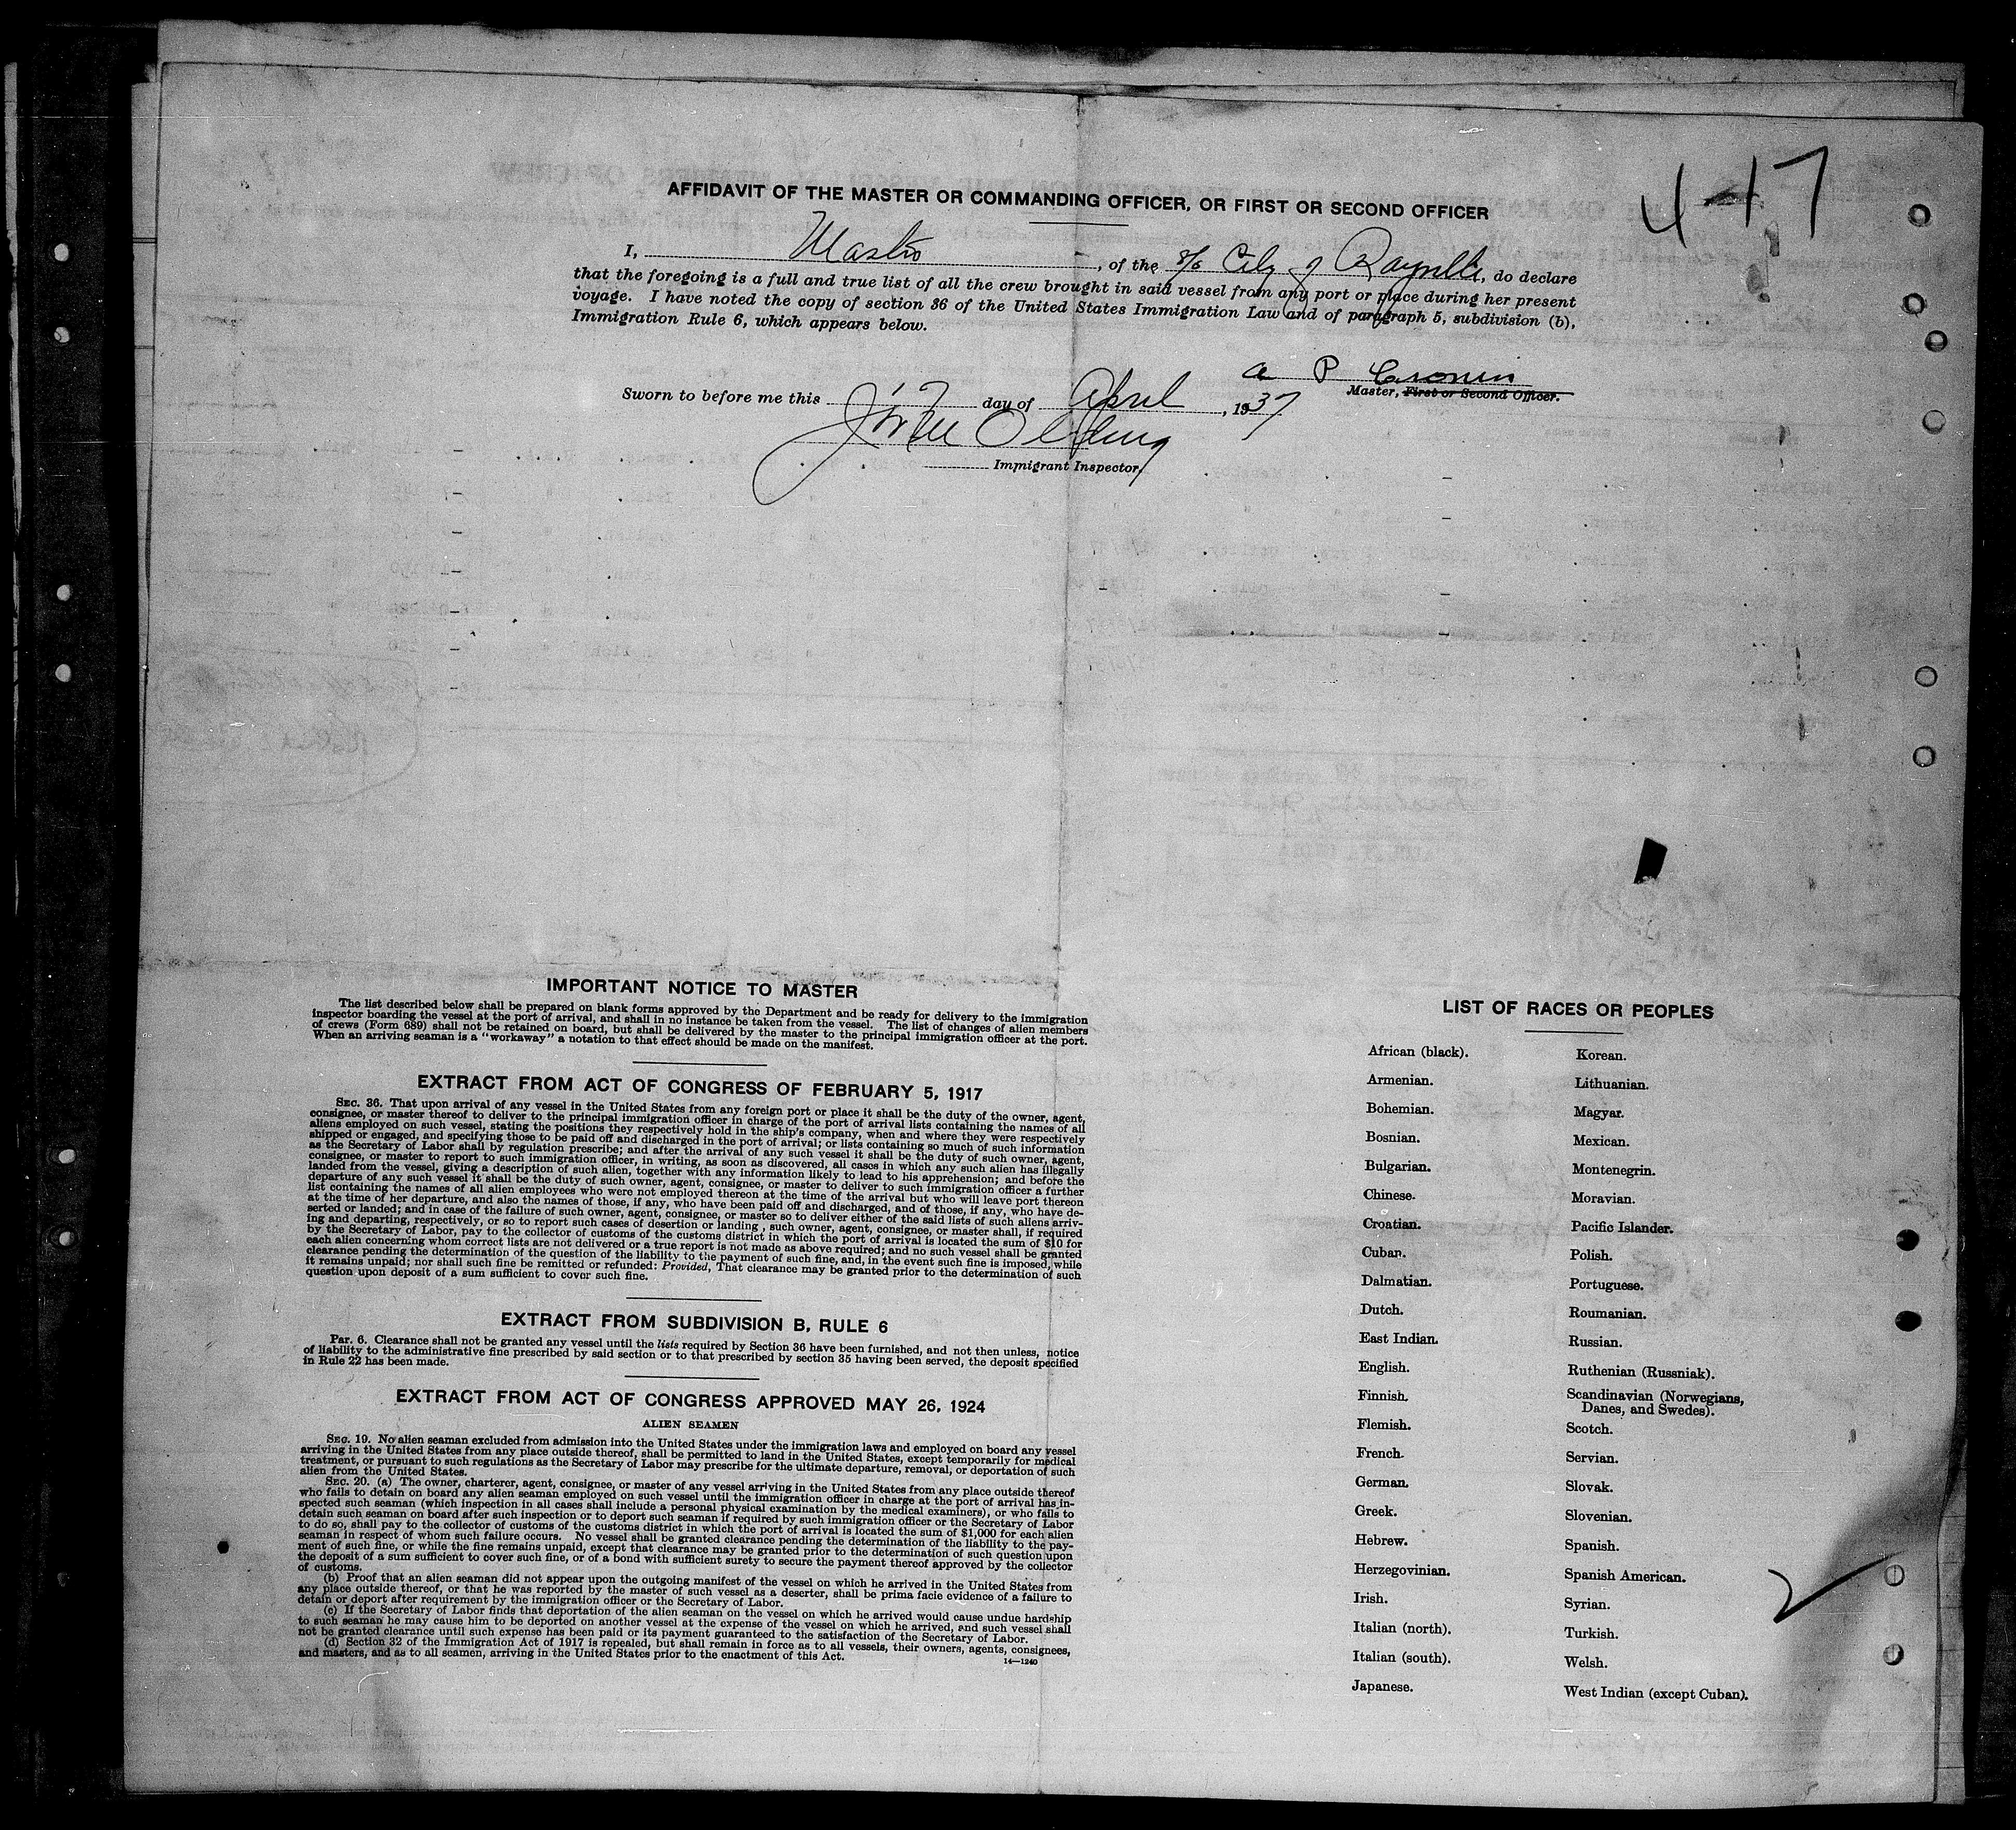 4-17
AFFIDAVIT OF THE MASTER OR COMMANDING OFFICER, OR FIRST OR SECOND OFFICER
I, Master, of the S/S City of Rayville, do declare
that the foregoing is a full and true list of all the crew brought in said vessel from any port or place during her present
voyage. I have noted the copy of section 36 of the United States Immigration Law and of paragraph 5, subdivision (b),
Immigration Rule 6, which appears below.
A P Cronin
Master, First or Second Officer.
Sworn to before me this 17 day of April, 1937
Immigrant Inspector.
IMPORTANT NOTICE TO MASTER
The list described below shall be prepared on blank forms approved by the Department and be ready for delivery to the immigration
inspector boarding the vessel at the port of arrival, and shall in no instance be taken from the vessel. The list of changes of alien members
of crews (Form 689) shall not be retained on board, but shall be delivered by the master to the principal immigration officer at the port.
When an arriving seaman is a "workaway" a notation to that effect should be made on the manifest.
EXTRACT FROM ACT OF CONGRESS OF FEBRUARY 5, 1917
SEC. 36. That upon arrival of any vessel in the United States from any foreign port or place it shall be the duty of the owner, agent,
consignee, or master thereof to deliver to the principal immigration officer in charge of the port of arrival lists containing the names of all
aliens employed on such vessel, stating the positions they respectively hold in the ship's company, when and where they were respectively
shipped or engaged, and specifying those to be paid off and discharged in the port of arrival; or lists containing so much of such information
as the Secretary of Labor shall by regulation prescribe; and after the arrival of any such vessel it shall be the duty of such owner, agent,
consignee, or master to report to such immigration officer, in writing, as soon as discovered, all cases in which any such alien has illegally
landed from the vessel, giving a description of such alien, together with any information likely to lead to his apprehension; and before the
departure of any such vessel it shall be the duty of such owner, agent, consignee, or master to deliver to such immigration officer a further
list containing the names of all alien employees who were not employed thereon at the time of the arrival but who will leave port thereon
at the time of her departure, and also the names of those, if any, who have been paid off and discharged, and of those, if any, who have de-
serted or landed; and in case of the failure of such owner, agent, consignee, or master so to deliver either of the said lists of such aliens arriv-
ing and departing, respectively, or so to report such cases of desertion or landing, such owner, agent, consignee, or master shall, if required
by the Secretary of Labor, pay to the collector of customs of the customs district in which the port of arrival is located the sum of $10 for
each alien concerning whom correct lists are not delivered or a true report is not made as above required; and no such vessel shall be granted
clearance pending the determination of the question of the liability to the payment of such fine, and, in the event such fine is imposed, while
it remains unpaid; nor shall such fine be remitted or refunded: Provided, That clearance may be granted prior to the determination of such
question upon deposit of a sum sufficient to cover such fine.
EXTRACT FROM SUBDIVISION B, RULE 6
Par. 6. Clearance shall not be granted any vessel until the lists required by Section 36 have been furnished, and not then unless, notice
of liability to the administrative fine prescribed by said section or to that prescribed by section 35 having been served, the deposit specified
in Rule 22 has been made.
EXTRACT FROM ACT OF CONGRESS APPROVED MAY 26, 1924
ALIEN SEAMEN
SEC. 19. No alien seaman excluded from admission into the United States under the immigration laws and employed on board any vessel
arriving in the United States from any place outside thereof, shall be permitted to land in the United States, except temporarily for medical
treatment, or pursuant to such regulations as the Secretary of Labor may prescribe for the ultimate departure, removal, or deportation of such
alien from the United States.
SEC. 20. (a) The owner, charterer, agent, consignee, or master of any vessel arriving in the United States from any place outside thereof
who fails to detain on board any alien seaman employed on such vessel until the immigration officer in charge at the port of arrival has in-
spected such seaman (which inspection in all cases shall include a personal physical examination by the medical examiners), or who fails to
detain such seaman on board after such inspection or to deport such seaman if required by such immigration officer or the Secretary of Labor
to do so, shall pay to the collector of customs of the customs district in which the port of arrival is located the sum of $1,000 for each alien
seaman in respect of whom such failure occurs. No vessel shall be granted clearance pending the determination of the liability to the pay-
ment of such fine, or while the fine remains unpaid, except that clearance may be granted prior to the determination of such question upon
the deposit of a sum sufficient to cover such fine, or of a bond with sufficient surety to secure the payment thereof approved by the collector
of customs.
(b) Proof that an alien seaman did not appear upon the outgoing manifest of the vessel on which he arrived in the United States from
any place outside thereof, or that he was reported by the master of such vessel as a deserter, shall be prima facie evidence of a failure to
detain or deport after requirement by the immigration officer or the Secretary of Labor.
(c) If the Secretary of Labor finds that deportation of the alien seaman on the vessel on which he arrived would cause undue hardship
to such seaman he may cause him to be deported on another vessel at the expense of the vessel on which he arrived, and such vessel shall
not be granted clearance until such expense has been paid or its payment guaranteed to the satisfaction of the Secretary of Labor.
(d) Section 32 of the Immigration Act of 1917 is repealed, but shall remain in force as to all vessels, their owners, agents, consignees,
and masters, and as to all seamen, arriving in the United States prior to the enactment of this Act.
14—1240
LIST OF RACES OR PEOPLES
African (black).
Armenian.
Bohemian.
Bosnian.
Bulgarian.
Chinese.
Croatian.
Cuban.
Dalmatian.
Dutch.
East Indian.
English.
Finnish.
Flemish.
French.
German.
Greek.
Hebrew.
Herzegovinian.
Irish.
Italian (north).
Italian (south).
Japanese.
Korean.
Lithuanian.
Magyar.
Mexican.
Montenegrin.
Moravian.
Pacific Islander.
Polish.
Portuguese.
Roumanian.
Russian.
Ruthenian (Russniak).
Scandinavian (Norwegians,
Danes, and Swedes).
Scotch.
Servian.
Slovak.
Slovenian.
Spanish.
Spanish American.
Syrian.
Turkish.
Welsh.
West Indian (except Cuban).